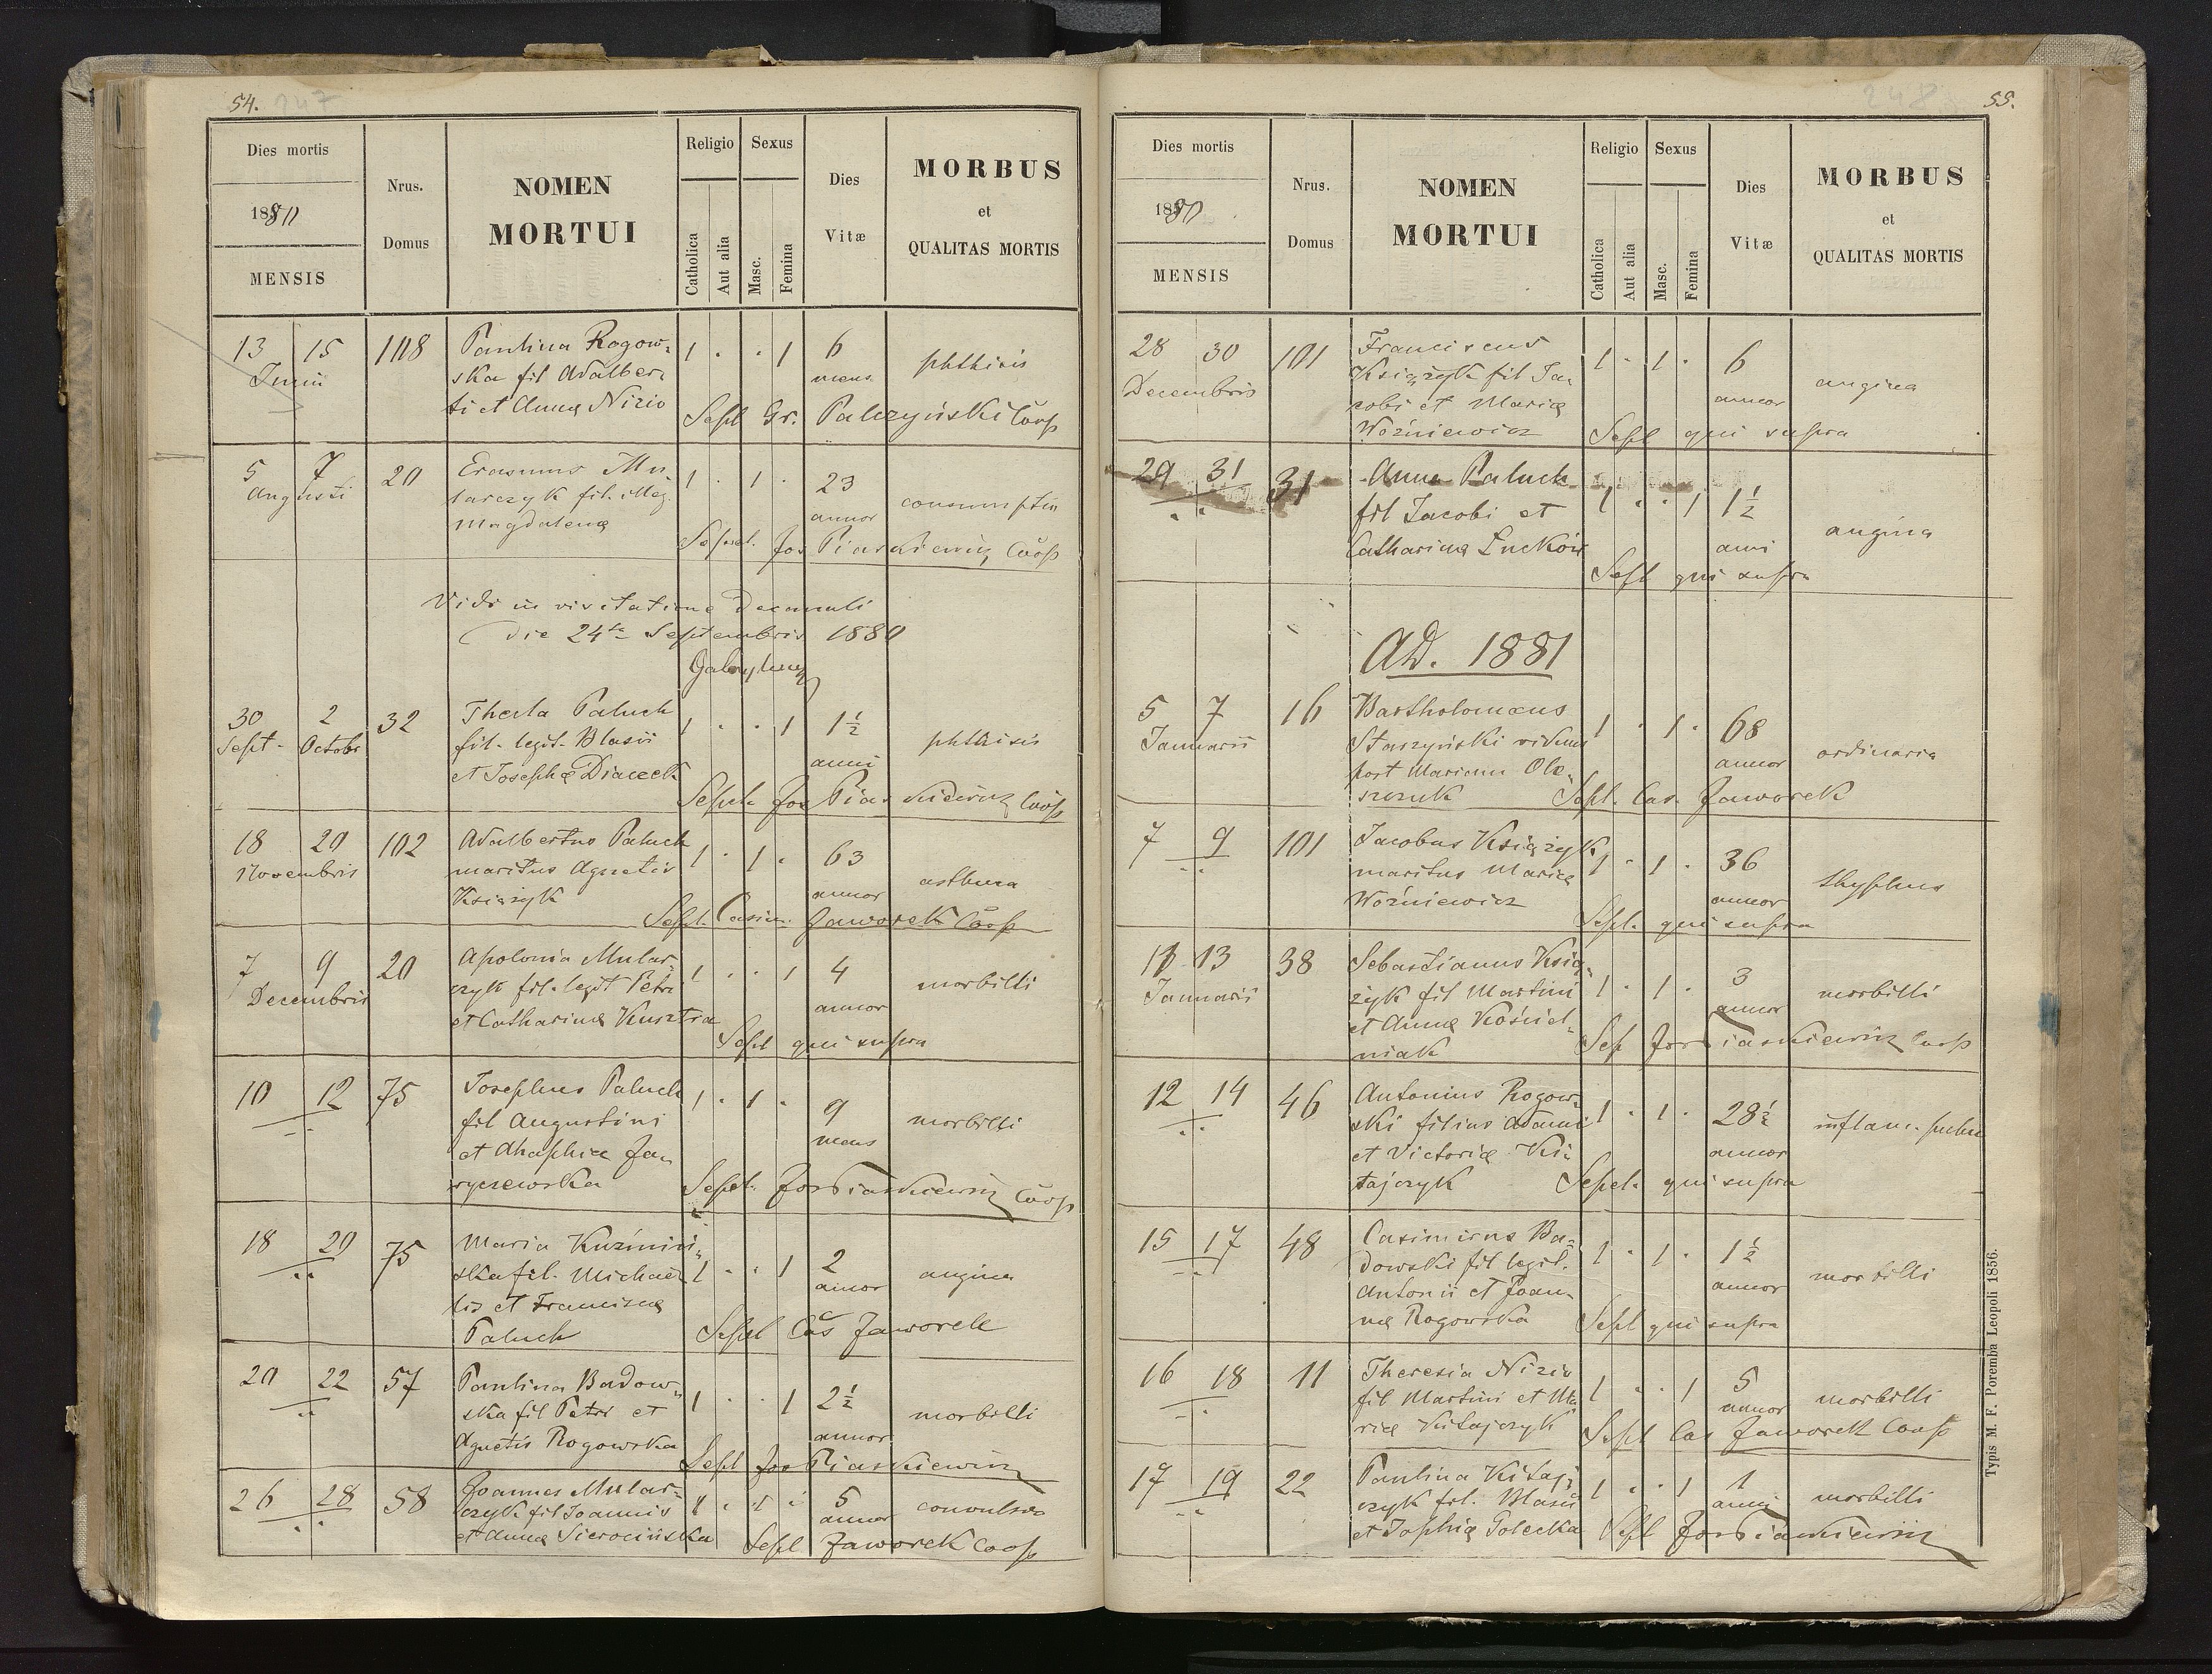 54. 247
Dies mortis
1880
MENSIS
Nrus.
Domus
NOMEN
MORTUI
Religio
Catholica
Aut alia
Sexus
Masc.
Femina
Dies
Vitæ
MORBUS
et
QUALITAS MORTIS
13 15 108 Paulina Rogow- 1 . . 1 6 phthisis
Junii ska fil Adalber- mens
ti et Annæ Nizio Sepl Gr. Palczyński Coop
5 7 20 Erasmus Mu- 1 . 1 . 23 consumptio
Augusti larczyk fil. illeg. annor
Magdalenæ Sepel. Jos Piaskiewicz Coop
Vidi in visitatione Decanali
die 24ta Septembris 1880
30 2 32 Thecla Paluch 1 . . 1 1½ phthisis
Sept. Octobr fil. legit. Blasii anni
et Josephæ Diaczek Sepel. Jos Piaskiewicz Coop
18 20 102 Adalbertus Paluch 1 . 1 . 63 asthma
Novembris maritus Agnetis annor
Książyk Sepl. Casim. Jaworek Coop
7 9 20 Apolonia Mular- 1 . . 1 4 morbilli
Decembris czyk fil. legit Petri annor
et Catharinæ Kusztra Sepl qui supra
10 12 75 Josephus Paluch 1 . 1 . 9 morbilli
fil Augustini mens
et Ahaphiæ Ja-
ryczewska Sepel. Jos Piaskiewicz Coop
18 20 75 Maria Kuzmiń- 1 . . 1 2 angina
ska fil. Michae- annor
lis et Franciscæ
Paluch Sepel Cas Jaworek
20 22 57 Paulina Badow- 1 . . 1 2½ morbilli
ska fil Petri et annor
Agnetis Rogowska Sepl Jos Piaskiewicz
26 28 58 Joannes Mular- 1 . 1 . 5 convulsio
czyk fil Joannis annor
et Annæ Sierocińska Sepl Jaworek Coop
248 55.
Dies mortis
1880
MENSIS
Nrus.
Domus
NOMEN
MORTUI
Religio
Catholica
Aut alia
Sexus
Masc.
Femina
Dies
Vitæ
MORBUS
et
QUALITAS MORTIS
28 30 101 Franciscus 1 . 1 . 6 angina
Decembris Książyk fil Ja- annor
cobi et Mariæ
Woźniewicz Sepl qui supra
29 31 31 Anna Paluch 1 . . 1 1½ angina
fil Jacobi et anni
Catharinæ Lucków Sepl qui supra
AD. 1881
5 7 16 Bartholomæus 1 . 1 . 68 ordinaria
Januarii Starzyński viduus annor
post Mariam Ole-
szczuk Sepl. Cas. Jaworek
7 9 101 Jacobus Książyk 1 . 1 . 36 thyphus
maritus Mariæ annor
Woźniewicz Sepl. qui supra
11 13 38 Sebastianus Ksią- 1 . 1 . 3 morbilli
Januarii żyk fil Martini annor
et Annæ Kośćiel-
niak Sep Jos Piaskiewicz Coop
12 14 46 Antonius Rogow- 1 . 1 . 28½ inflam. pulm
ski filius Adami annor
et Victoriæ Ki-
tajczyk Sepel. qui supra
15 17 48 Casimirus Ba- 1 . 1 . 1½ morbilli
dowski fil legit. annor
Antonii et Joan-
næ Rogowska Sepl qui supra
16 18 11 Theresia Nizio 1 . . 1 5 morbilli
fil Martini et Ma- annor
riæ Kitajczyk Sepl Cas Jaworek Coop
17 19 22 Paulina Kitaj- 1 . . 1 1 morbilli
czyk fil. Blasii anni
et Sophiæ Golecka Sepl Jos Piaskiewicz
Typis M. F. Poremba Leopoli 1856.